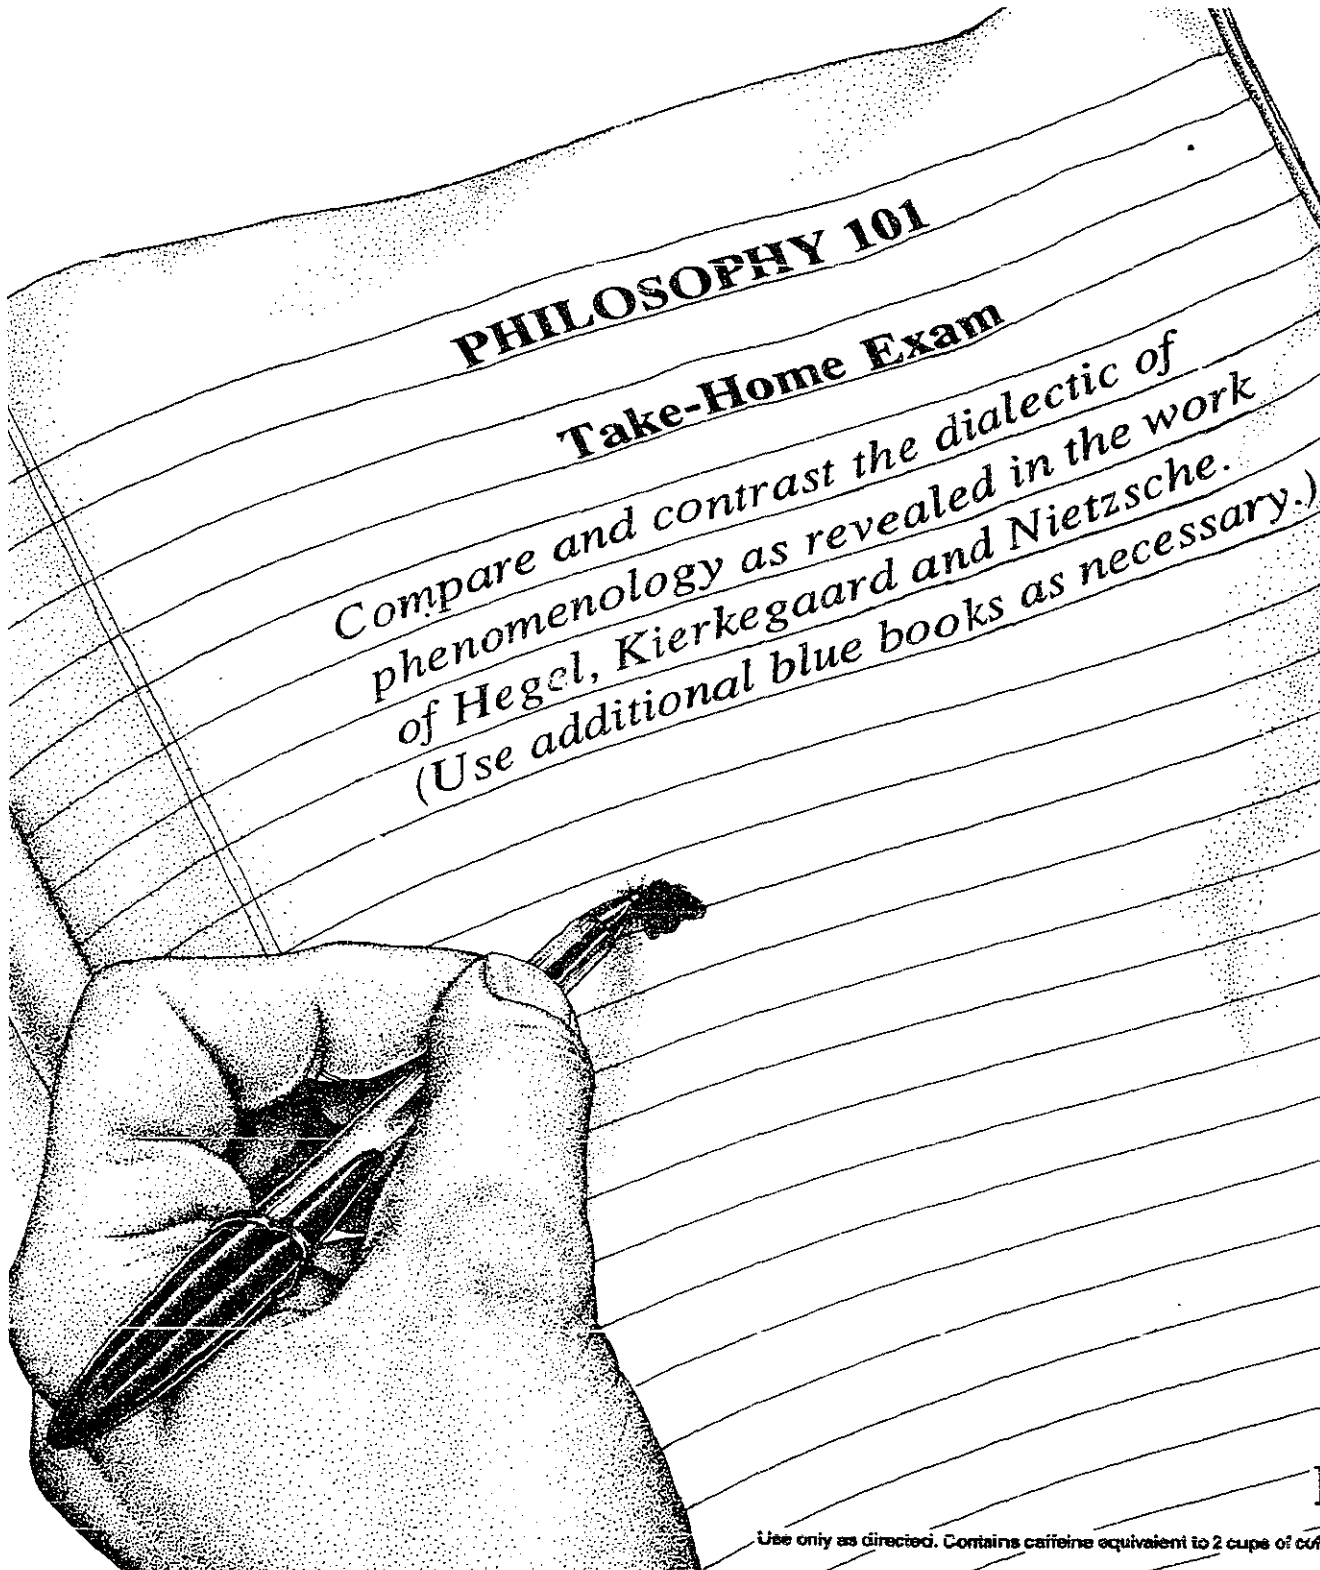 PHILOSOPHY 101
Take-Home Exam
Compare and contrast the dialectic of
phenomenology as revealed in the work
of Hegel, Kierkegaard and Nietzsche.
(Use additional blue books as necessary.)
Use only as directed. Contains caffeine equivalent to 2 cups of